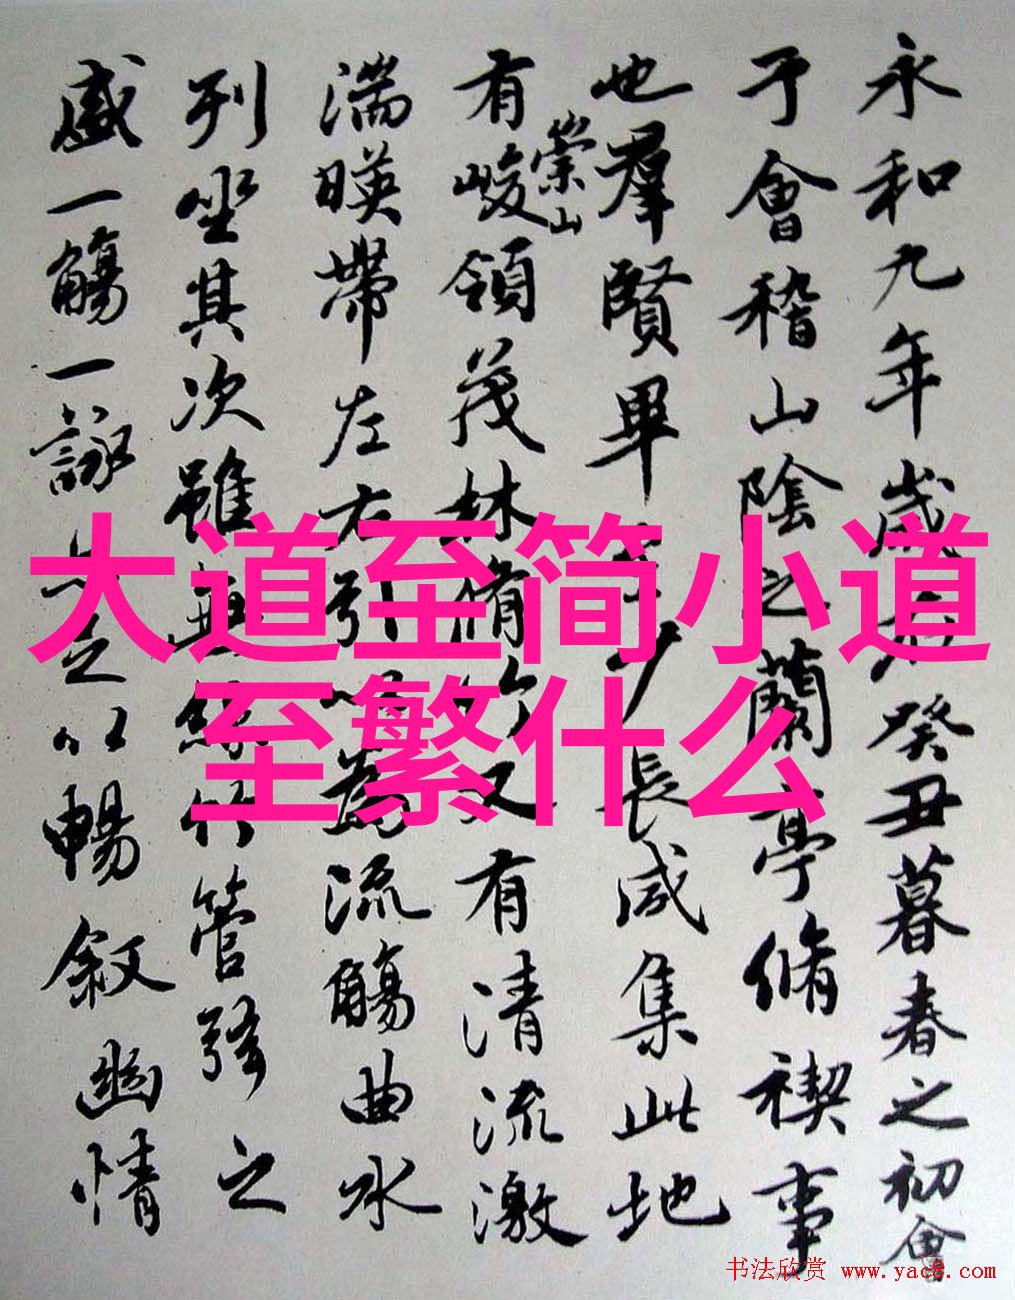 永和九年歲在癸丑暮春之初會
于會稽山陰之蘭亭脩禊事
也羣賢畢至少長咸集此地
有崇山峻領茂林脩竹又有清流激
湍暎帶左右引以為流觴曲水
列坐其次雖無絲竹管弦之
盛一觴一詠亦足以暢敘幽情
大道至简小道
至繁什么
书法欣赏 www.yac8.com